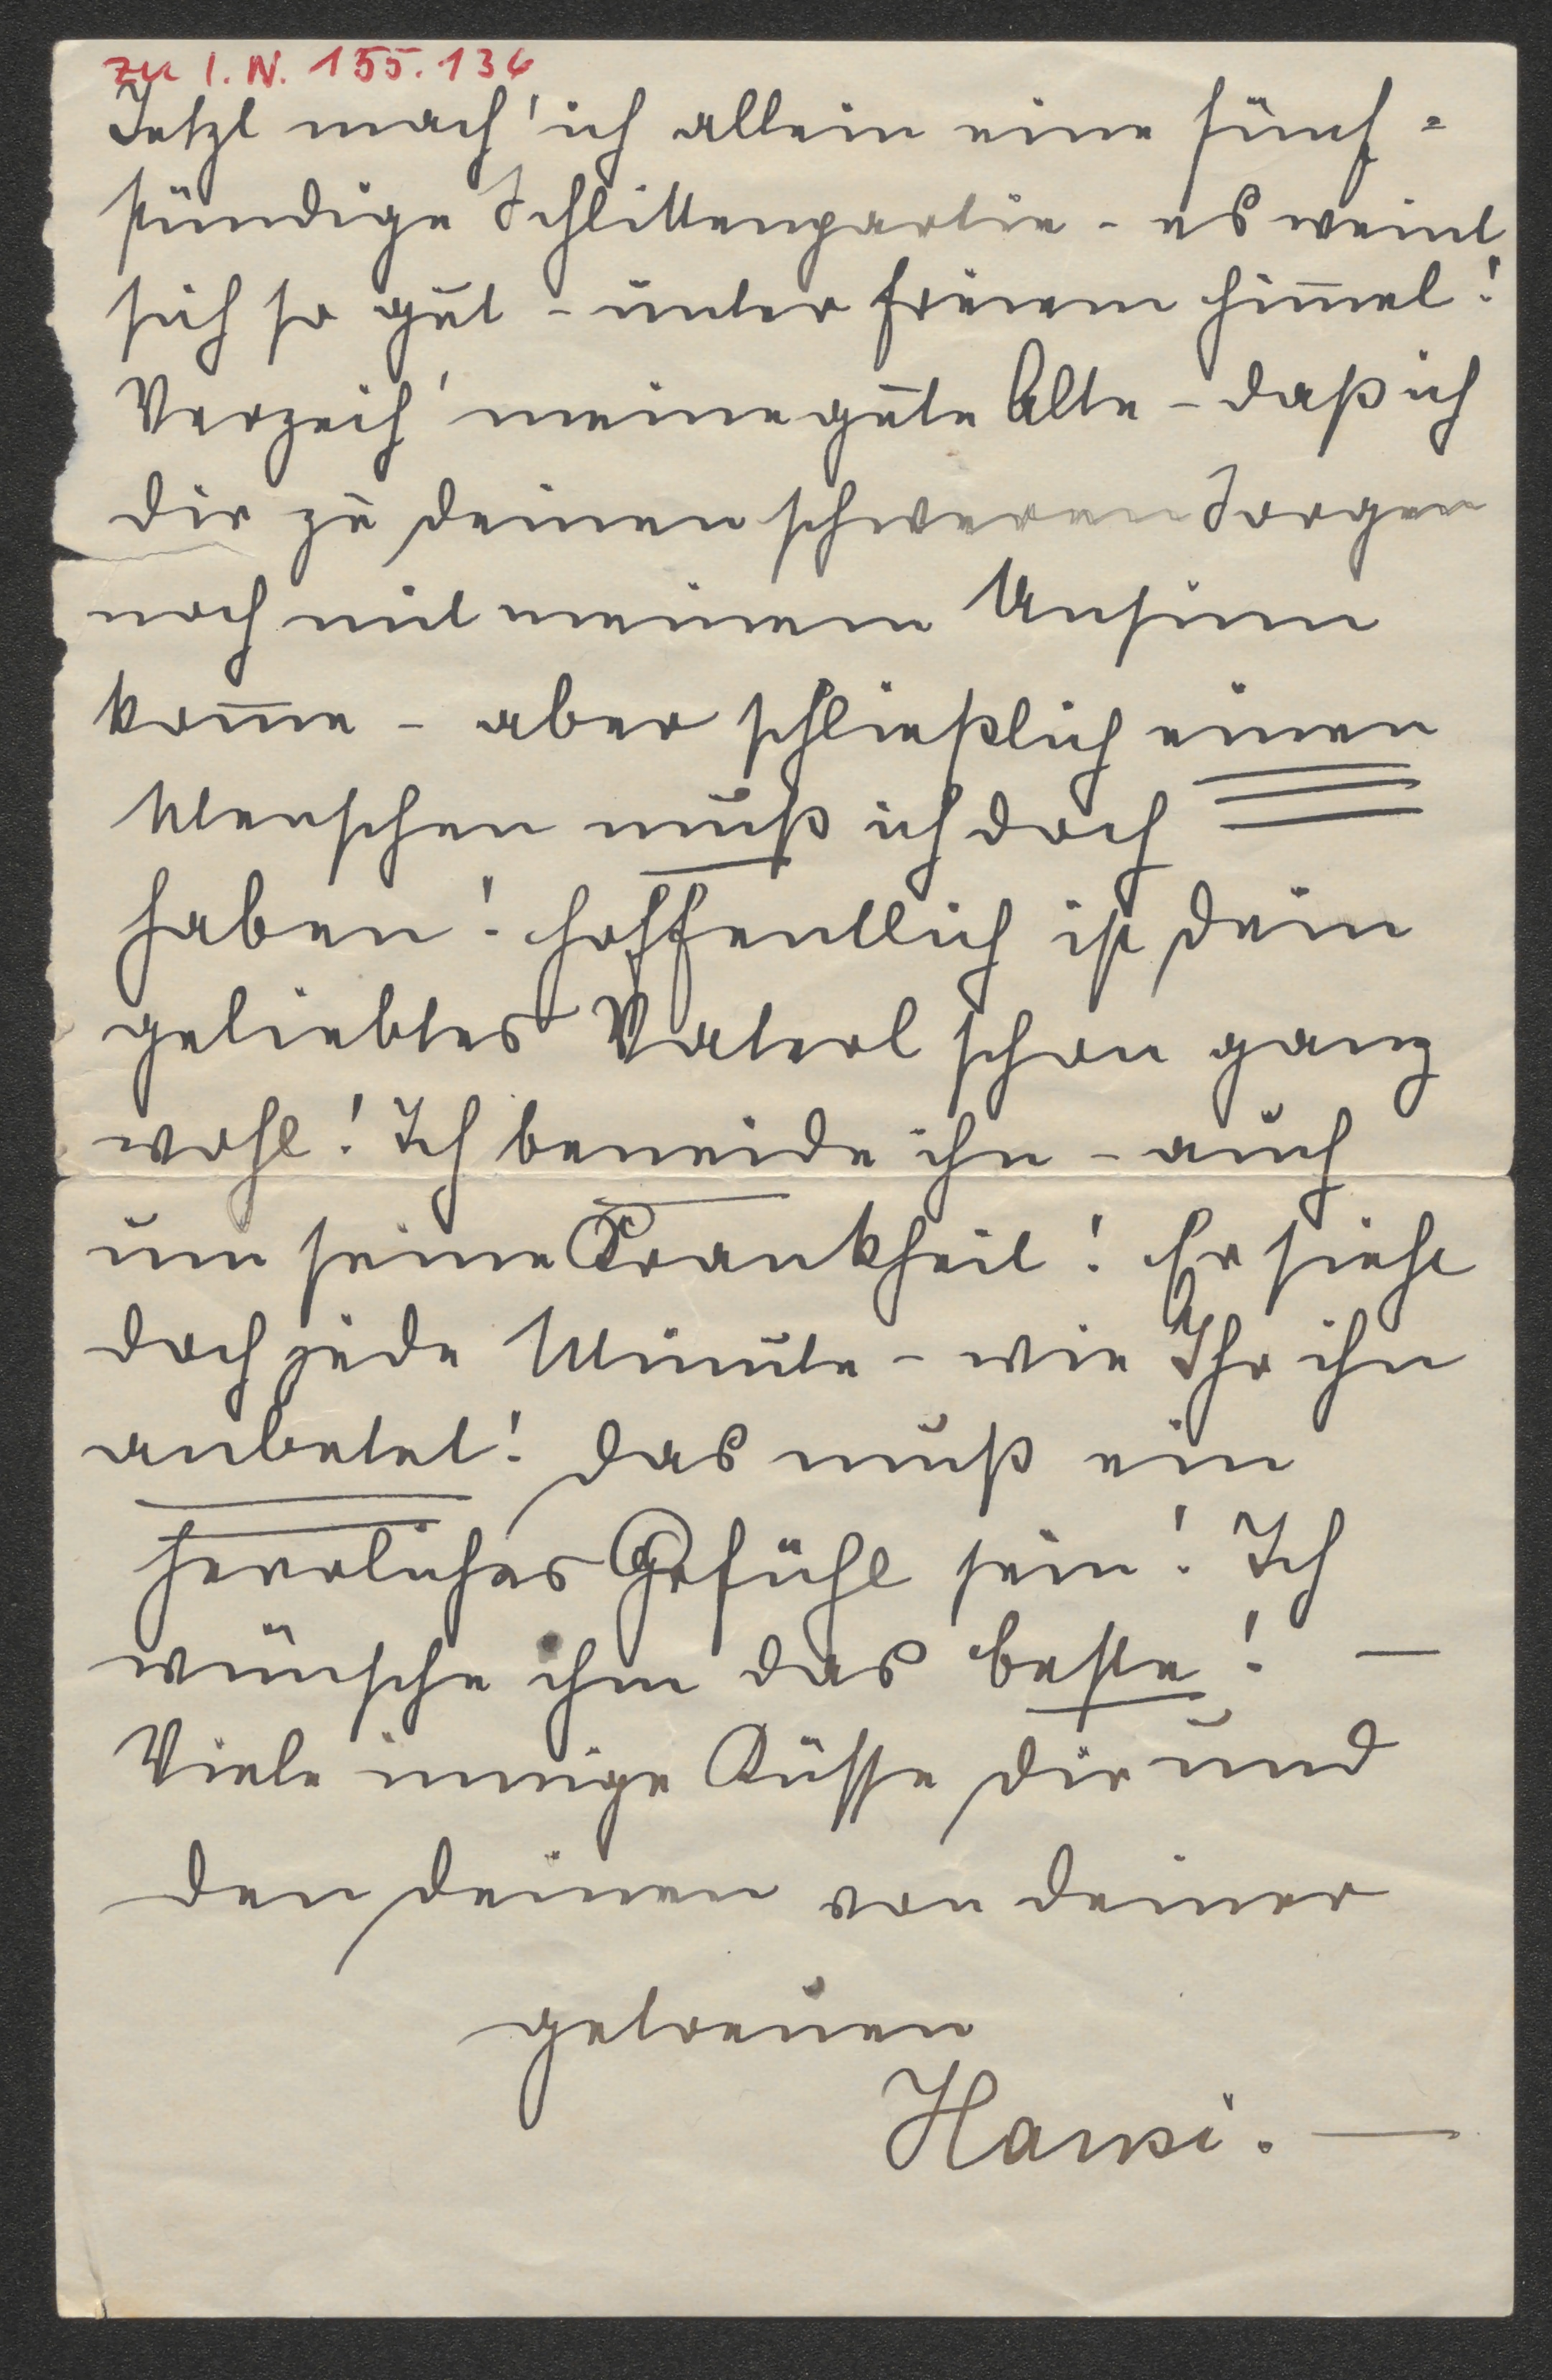 zu I. N. 155.136
Jetzt mach' ich allein eine fünf=
stündige Schlittenpartie - es weint
sich so gut - unter freiem Him̅el!
Verzeih' meine gute Alte - daß ich
dir zu deinen schweren Sorgen
noch mit meinem Unsinn
kom̅e - aber schließlich einen
Menschen muß ich doch
haben! Hoffentlich ist dein
geliebtes Vaterl schon ganz
wohl! Ich beneide ihn - auch
um seine Krankheit! Er sieht
doch jede Minute - wie Ihr ihn
anbetet! Das muß ein
herrliches Gefühl sein! Ich
wünsche ihm das beste! —
Viele innige Küsse dir und
den deinen von deiner
getreuen
Hansi. —